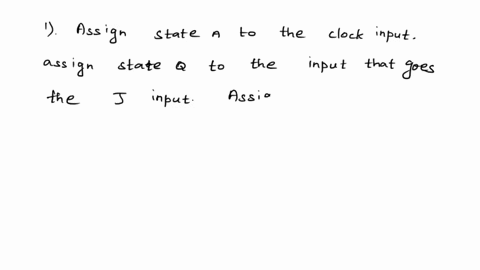 1). Assign state A to the clock input.
assign state Q to the input that goes
the J input. Assig